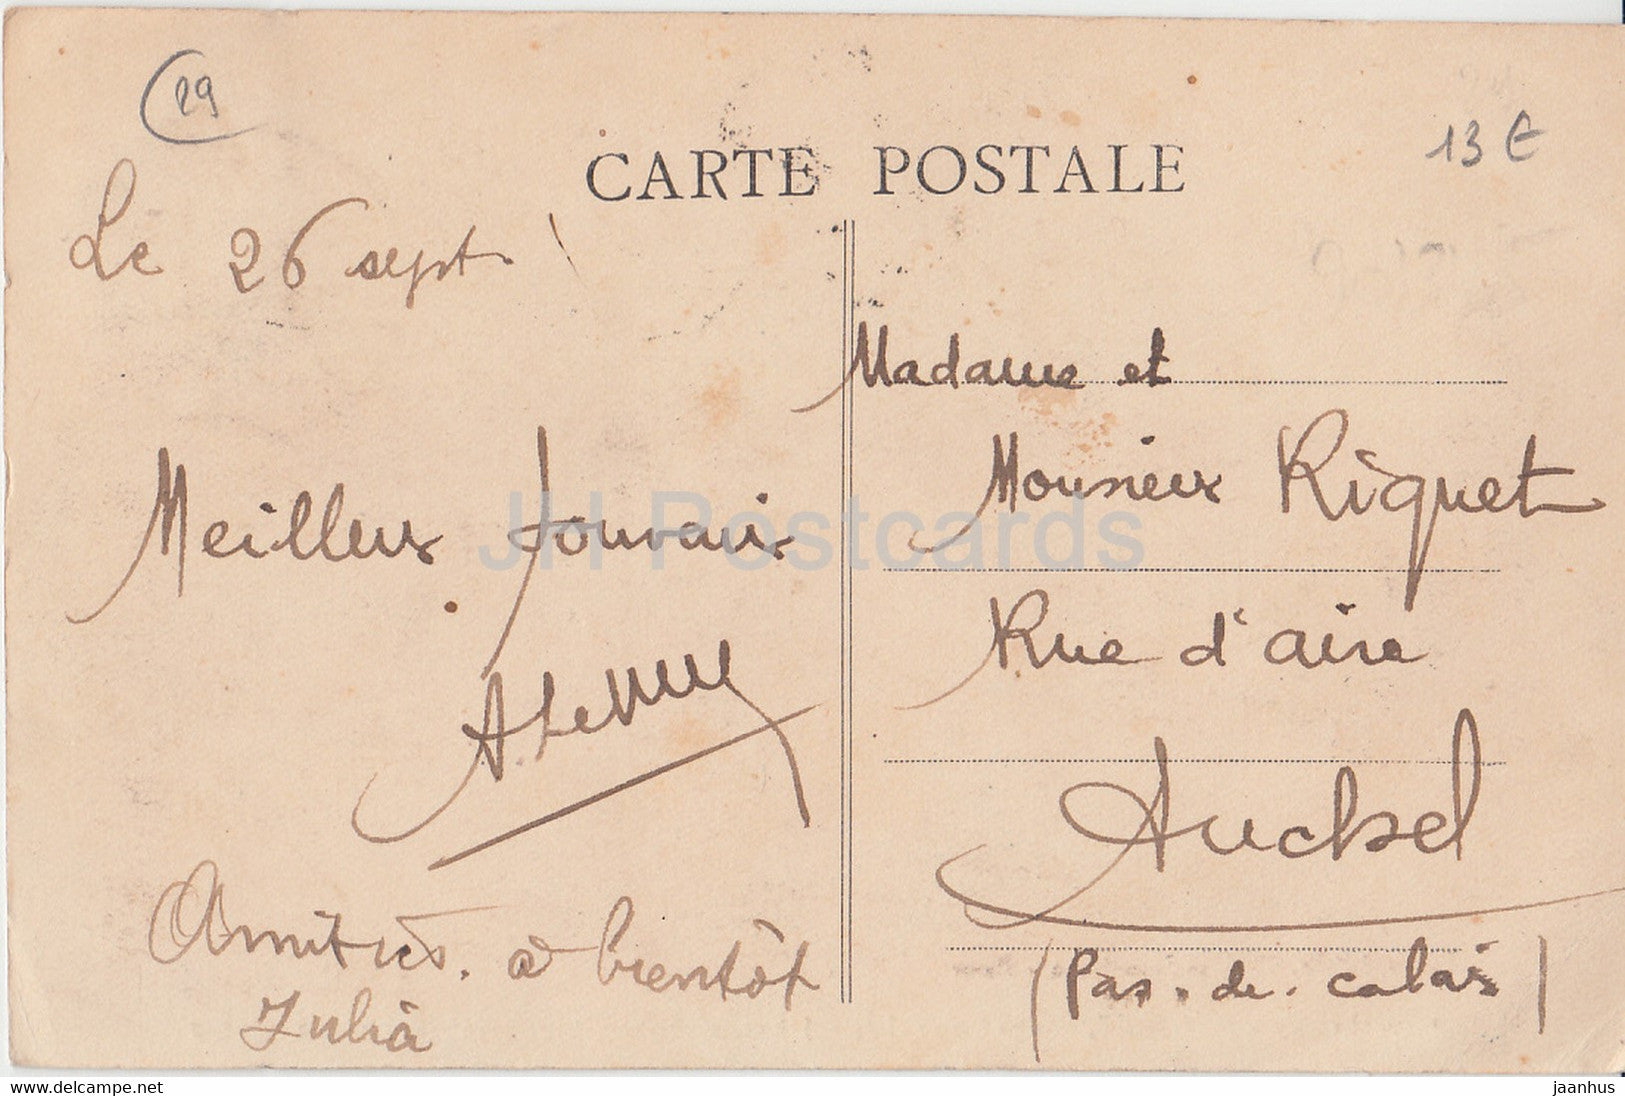 29
CARTE POSTALE
13 €
Le 26 sept.
Meilleurs souvenirs
Amitiés. à bientôt
Julia
Madame et
Monsieur Riquet
Rue d'aire
Auchel
(Pas-de-calais)
JH Postcards
www.delcampe.net
jaanhus